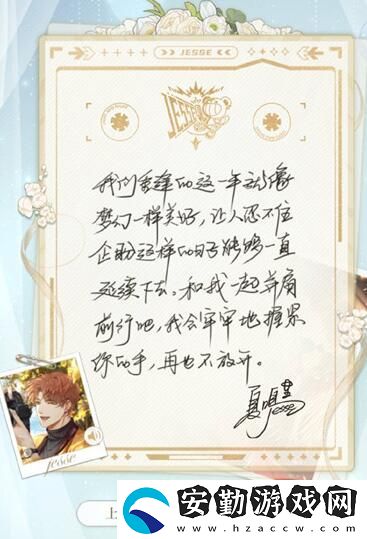 JESSE
JESSE
我们重逢的这一年就像
梦幻一样美好，让人忍不住
企盼这样的日子能够一直
延续下去。和我一起并肩
前行吧，我会牢牢地握紧
你的手，再也不放开。
夏鸣星
Jesse
Jesse
上
安勤游戏网
www.hzaccw.com